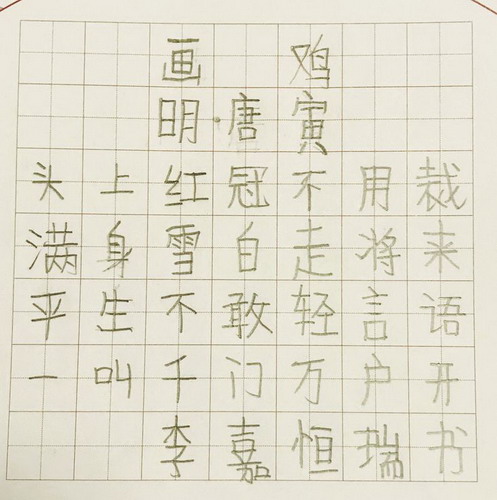 画鸡
明·唐寅
头上红冠不用裁
满身雪白走将来
平生不敢轻言语
一叫千门万户开
李嘉恒瑞书